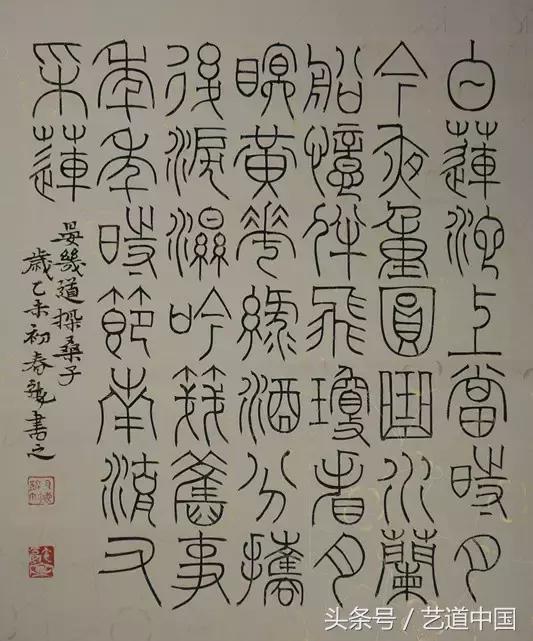 白蓮池上當時月
今夜重圓曲水蘭
船憶伴飛瓊看月
瞑黃花綠酒分攜
後淚濕吟箋舊事
年年時節南湖又
采蓮
晏幾道採桑子
歲乙未初春書之
头条号 / 艺道中国